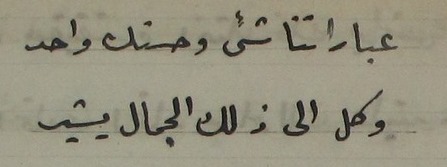 عباراتنا شتىً وحسنك واحد
وكل الى ذلك الجمال يشير